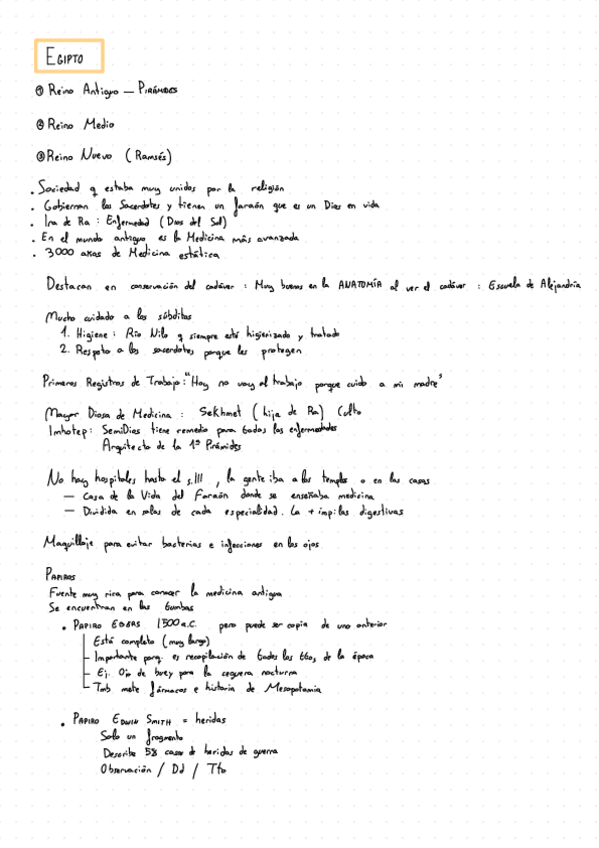 EGIPTO
① Reino Antiguo — PIRÁMIDES
② Reino Medio
③ Reino Nuevo (Ramsés)
. Sociedad q estaba muy unidos por la religión
. Gobiernan los Sacerdotes y tienen un faraón que es un Dios en vida
. Ira de Ra : Enfermedad (Dios del Sol)
. En el mundo antiguo es la Medicina más avanzada
. 3000 años de Medicina estática
Destacan en conservación del cadáver : Muy buenos en la ANATOMÍA al ver el cadáver : Escuela de Alejandría
Mucho cuidado a los súbditos
1. Higiene : Río Nilo q siempre esté higienizado y tratado
2. Respeto a los sacerdotes porque les protegen
Primeros Registros de Trabajo: "Hoy no voy al trabajo porque cuido a mi madre"
Mayor Diosa de Medicina : Sekhmet (hija de Ra) Culto
Imhotep : SemiDios tiene remedio para todas las enfermedades
Arquitecto de la 1ª Pirámides
No hay hospitales hasta el s.III , la gente iba a los templos o en las casas
— Casa de la Vida del Faraón donde se enseñaba medicina
— Dividida en salas de cada especialidad. La + imp: las digestivas
Maquillaje para evitar bacterias e infecciones en los ojos
PAPIROS
Fuente muy rica para conocer la medicina antigua
Se encuentran en las tumbas
. PAPIRO EBERS 1500 a.C. pero puede ser copia de uno anterior
Está completo (muy largo)
Importante porq. es recopilación de todos los ttos, de la época
Ej. Ojo de buey para la ceguera nocturna
Tmb mete fármacos e historia de Mesopotamia
. PAPIRO EDWIN SMITH = heridas
Solo un fragmento
Describe 58 casos d heridas de guerra
Observación / Dd / Tto